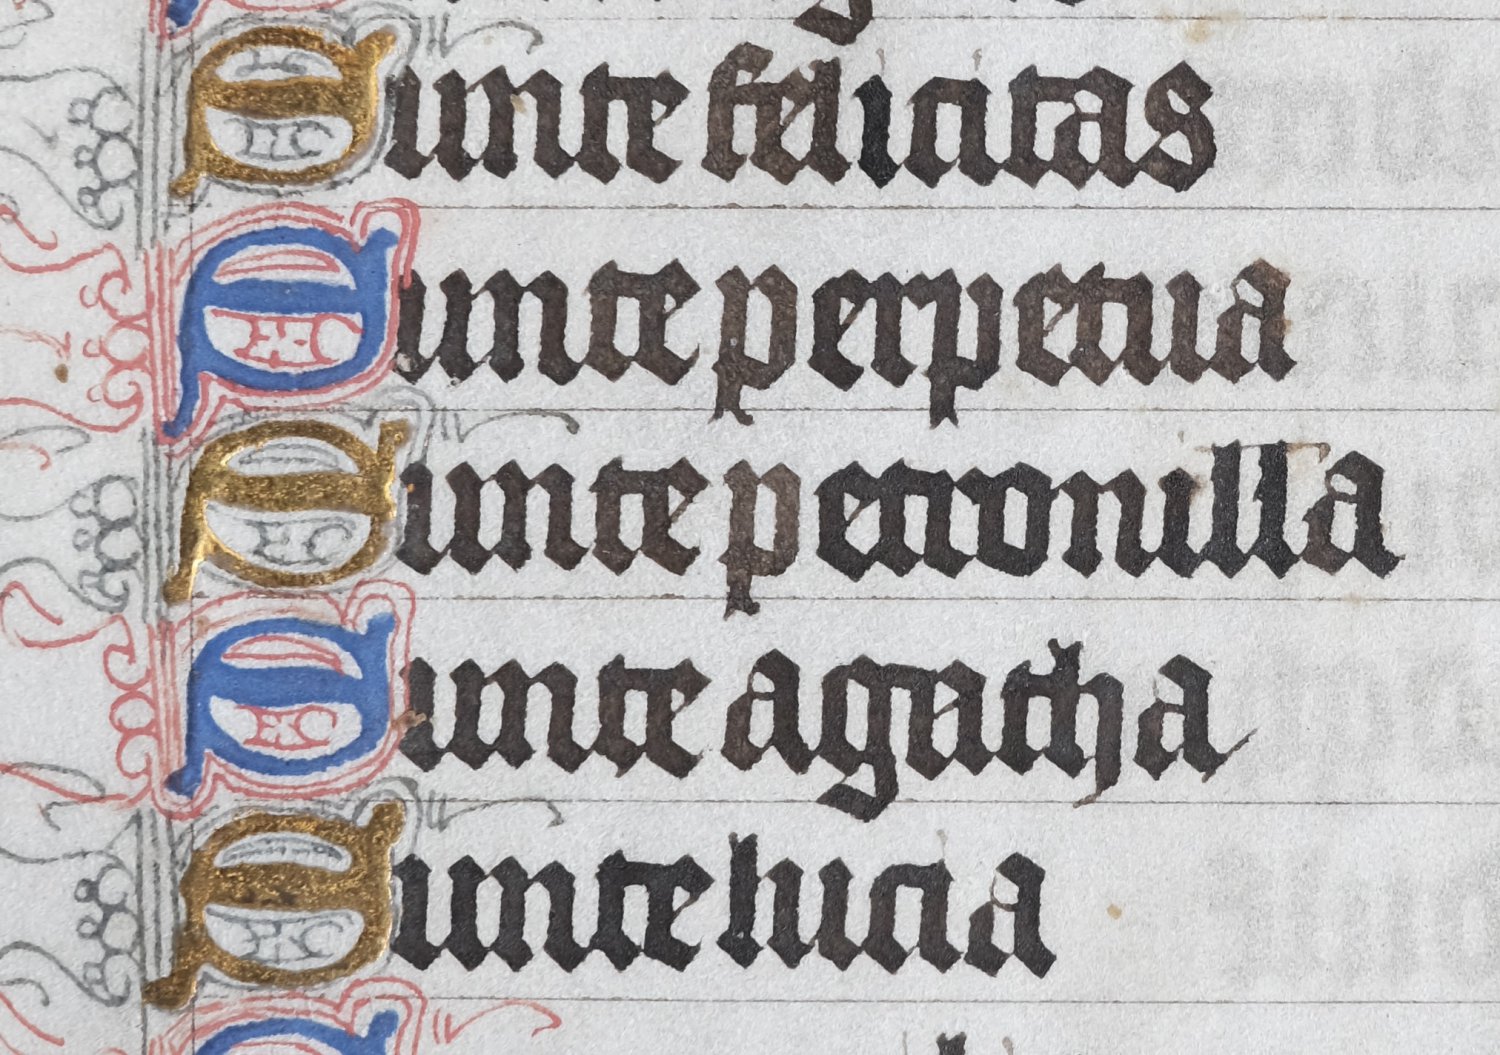 Sunte felicitas
Sunte perpetua
Sunte petronilla
Sunte agatha
Sunte lucia